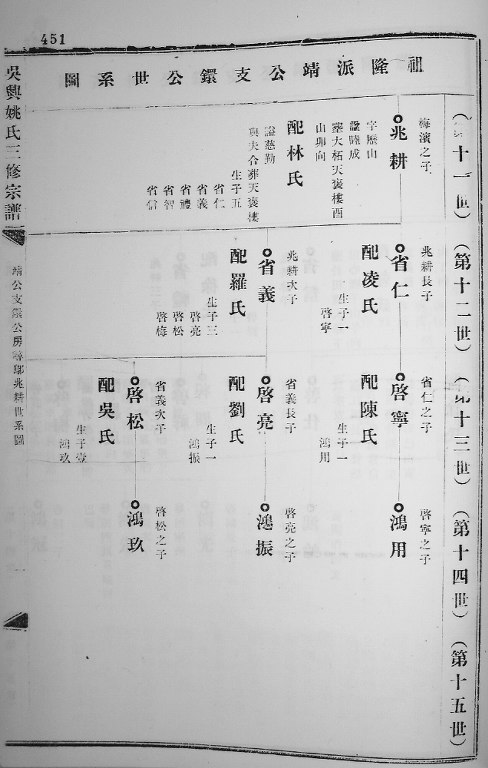 451
祖隆派靖公支鐶公世系圖
吳興姚氏三修宗譜
靖公支鐶公房
兆耕世系圖
十一世）
（第十二世）
十三世）
（第十四世）
（第十五世）
梅濱之子
兆耕
字歷山
諡睦成
葬大柘天褒樓酉
山卯向
配林氏
諡慈勤
與夫合葬天褒樓
生子五
省仁
省義
省禮
省智
省信
兆耕長子
省仁
配凌氏
生子一
啓寧
兆耕次子
省義
配羅氏
生子三
啓亮
啓松
啓梅
省仁之子
啓寧
配陳氏
生子一
鴻用
省義長子
啓亮
配劉氏
生子一
鴻振
省義次子
啓松
配吳氏
生子壹
鴻玖
啓寧之子
鴻用
啓亮之子
鴻振
啓松之子
鴻玖